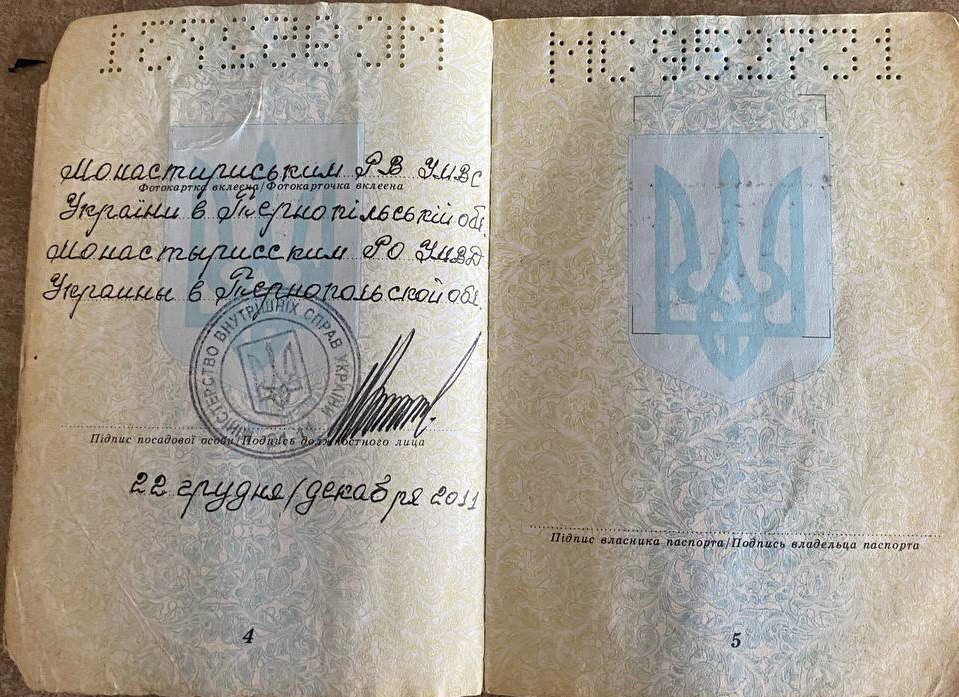 Монастириським РВ УМВС
Фотокартка вклеєна/Фотокарточка вклеена
України в Тернопільській обл.
Монастырисским РО УМВД
Украины в Тернопольской обл.
МІНІСТЕРСТВО ВНУТРІШНІХ СПРАВ УКРАЇНИ
Підпис посадової особи/Подпись должностного лица
22 грудня/декабря 2011
4
Підпис власника паспорта/Подпись владельца паспорта
5